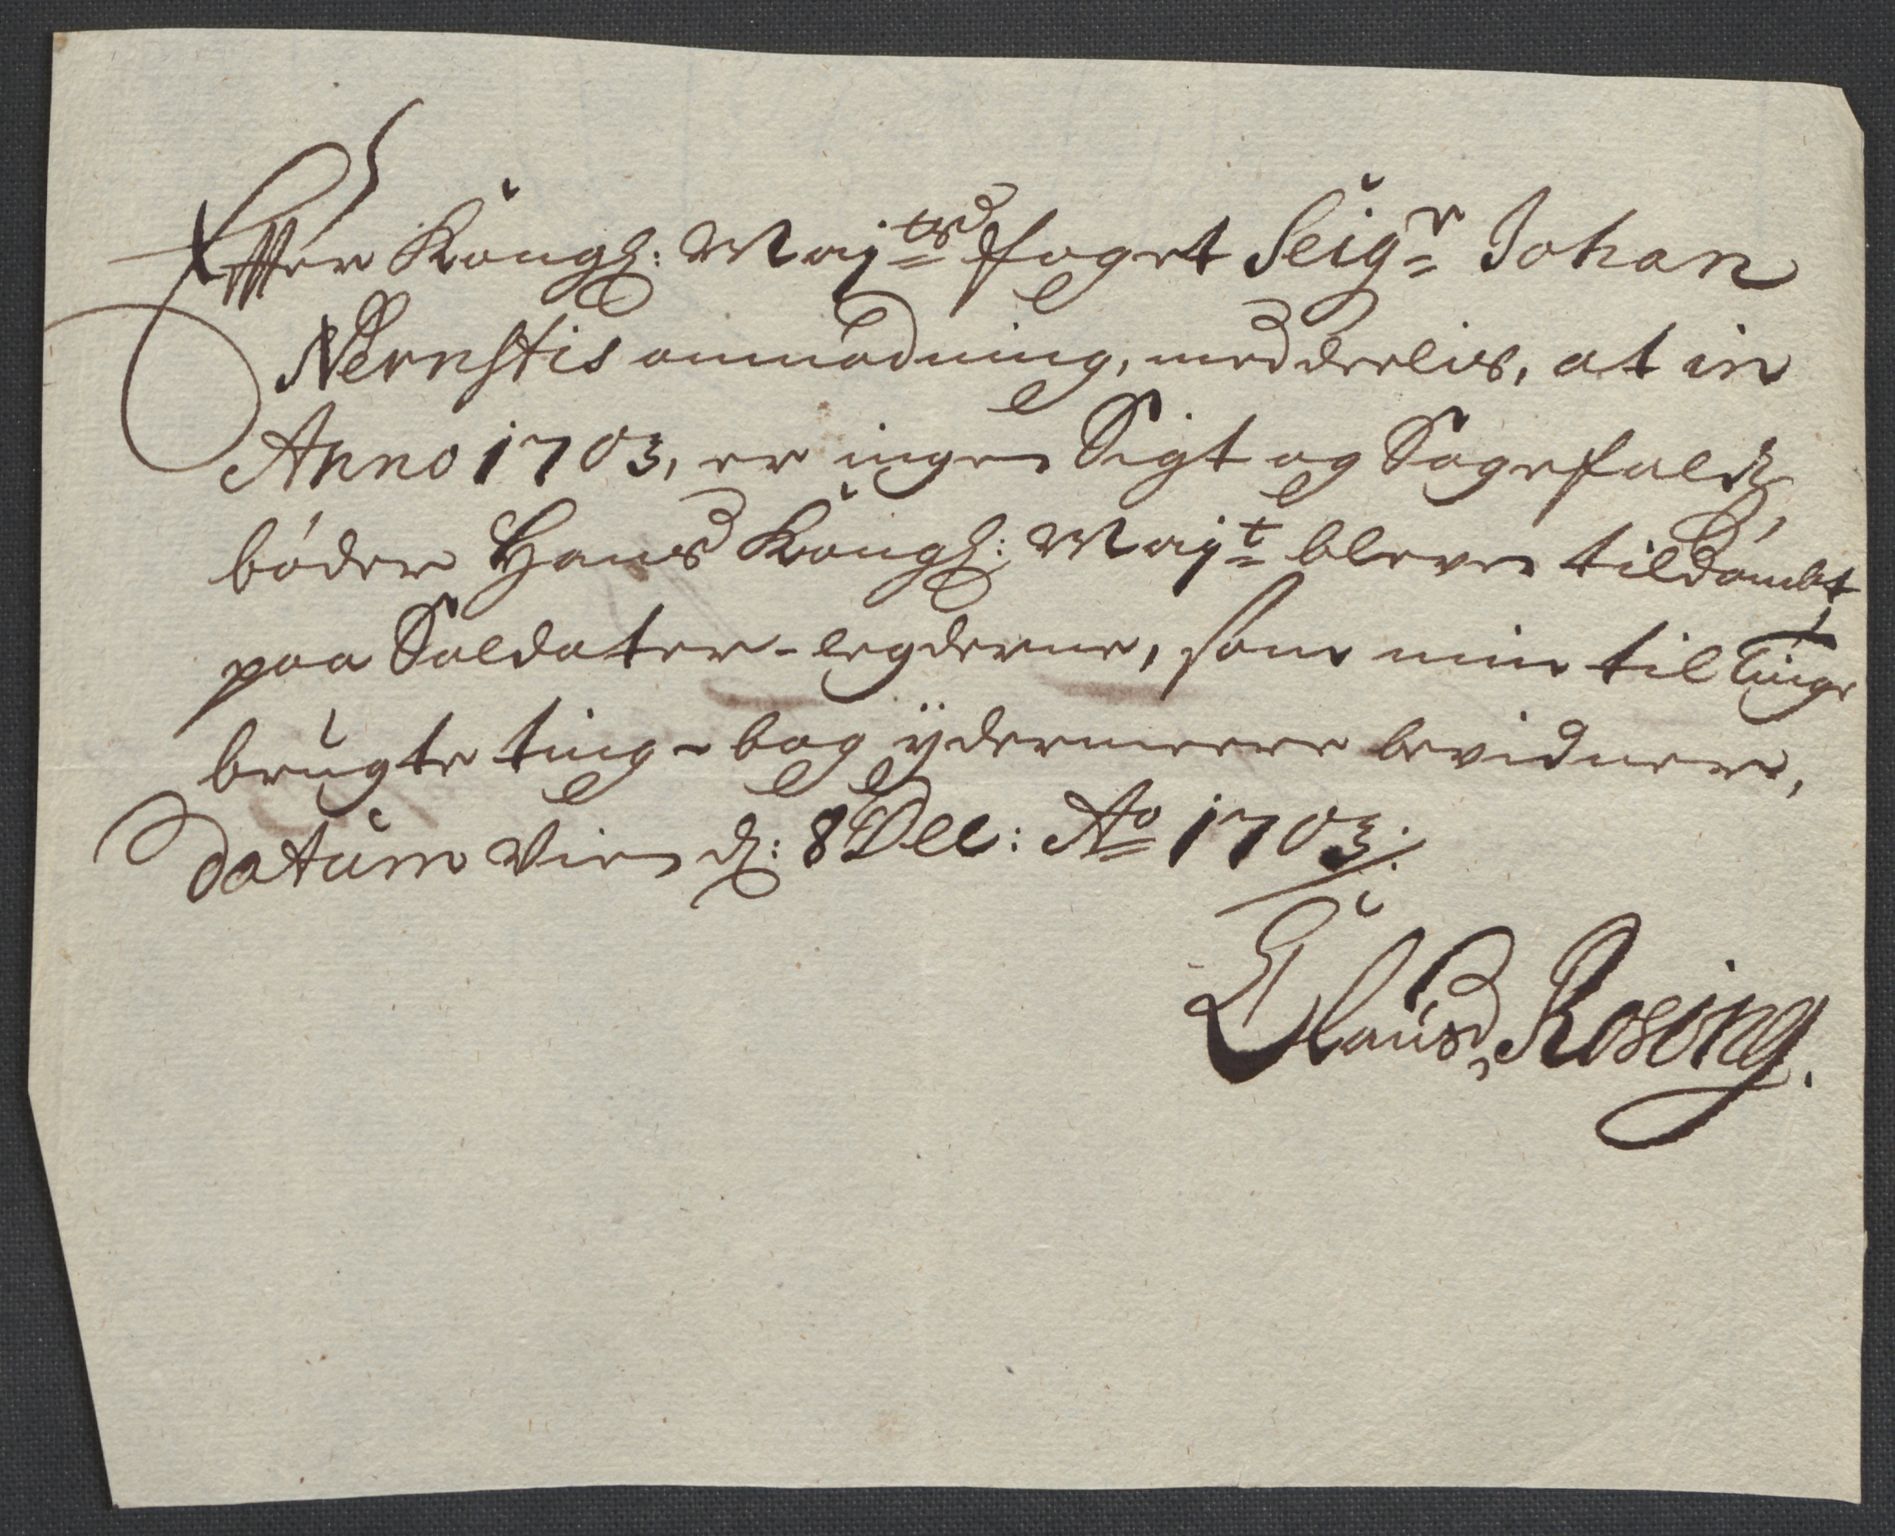 Effter Kongl: Maytˢ foget Seigʳ Johan
Nernstis anmodning, meddeelis, at in
Anno 1703, er ingen Sigt og Sagefalds
bøder Hans Kongl: Mayᵗ bleven tildømbt
paa Soldater-legderne, som min til tinge
brugte ting-bog ÿdermeere bevidner,
datum Vien d: 8 Dec: Aᵒ 1703.
Claus Rosing.